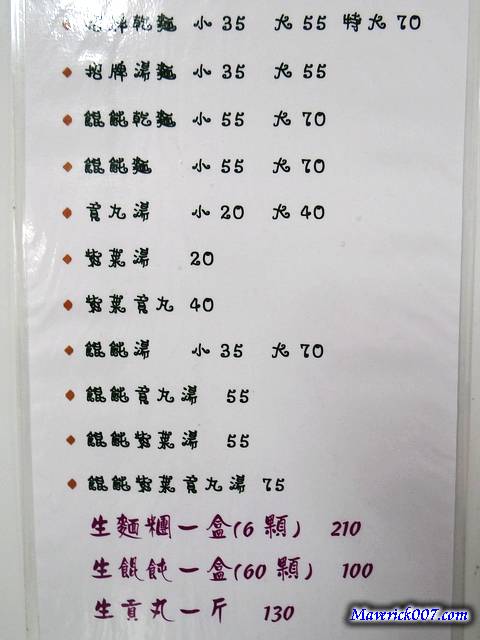 招牌乾麵 小 35 大 55 特大 70
招牌湯麵 小 35 大 55
餛飩乾麵 小 55 大 70
餛飩麵 小 55 大 70
貢丸湯 小 20 大 40
紫菜湯 20
紫菜貢丸 40
餛飩湯 小 35 大 70
餛飩貢丸湯 55
餛飩紫菜湯 55
餛飩紫菜貢丸湯 75
生麵糰一盒(6 顆) 210
生餛飩一盒(60 顆) 100
生貢丸一斤 130
Maverick007.com